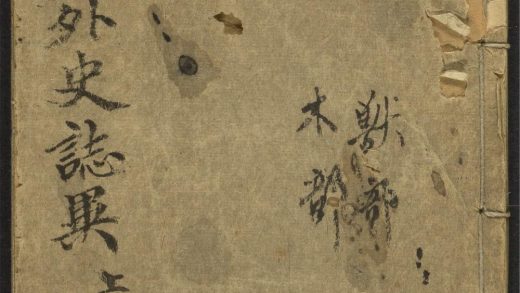 獸部
木部
外史誌異